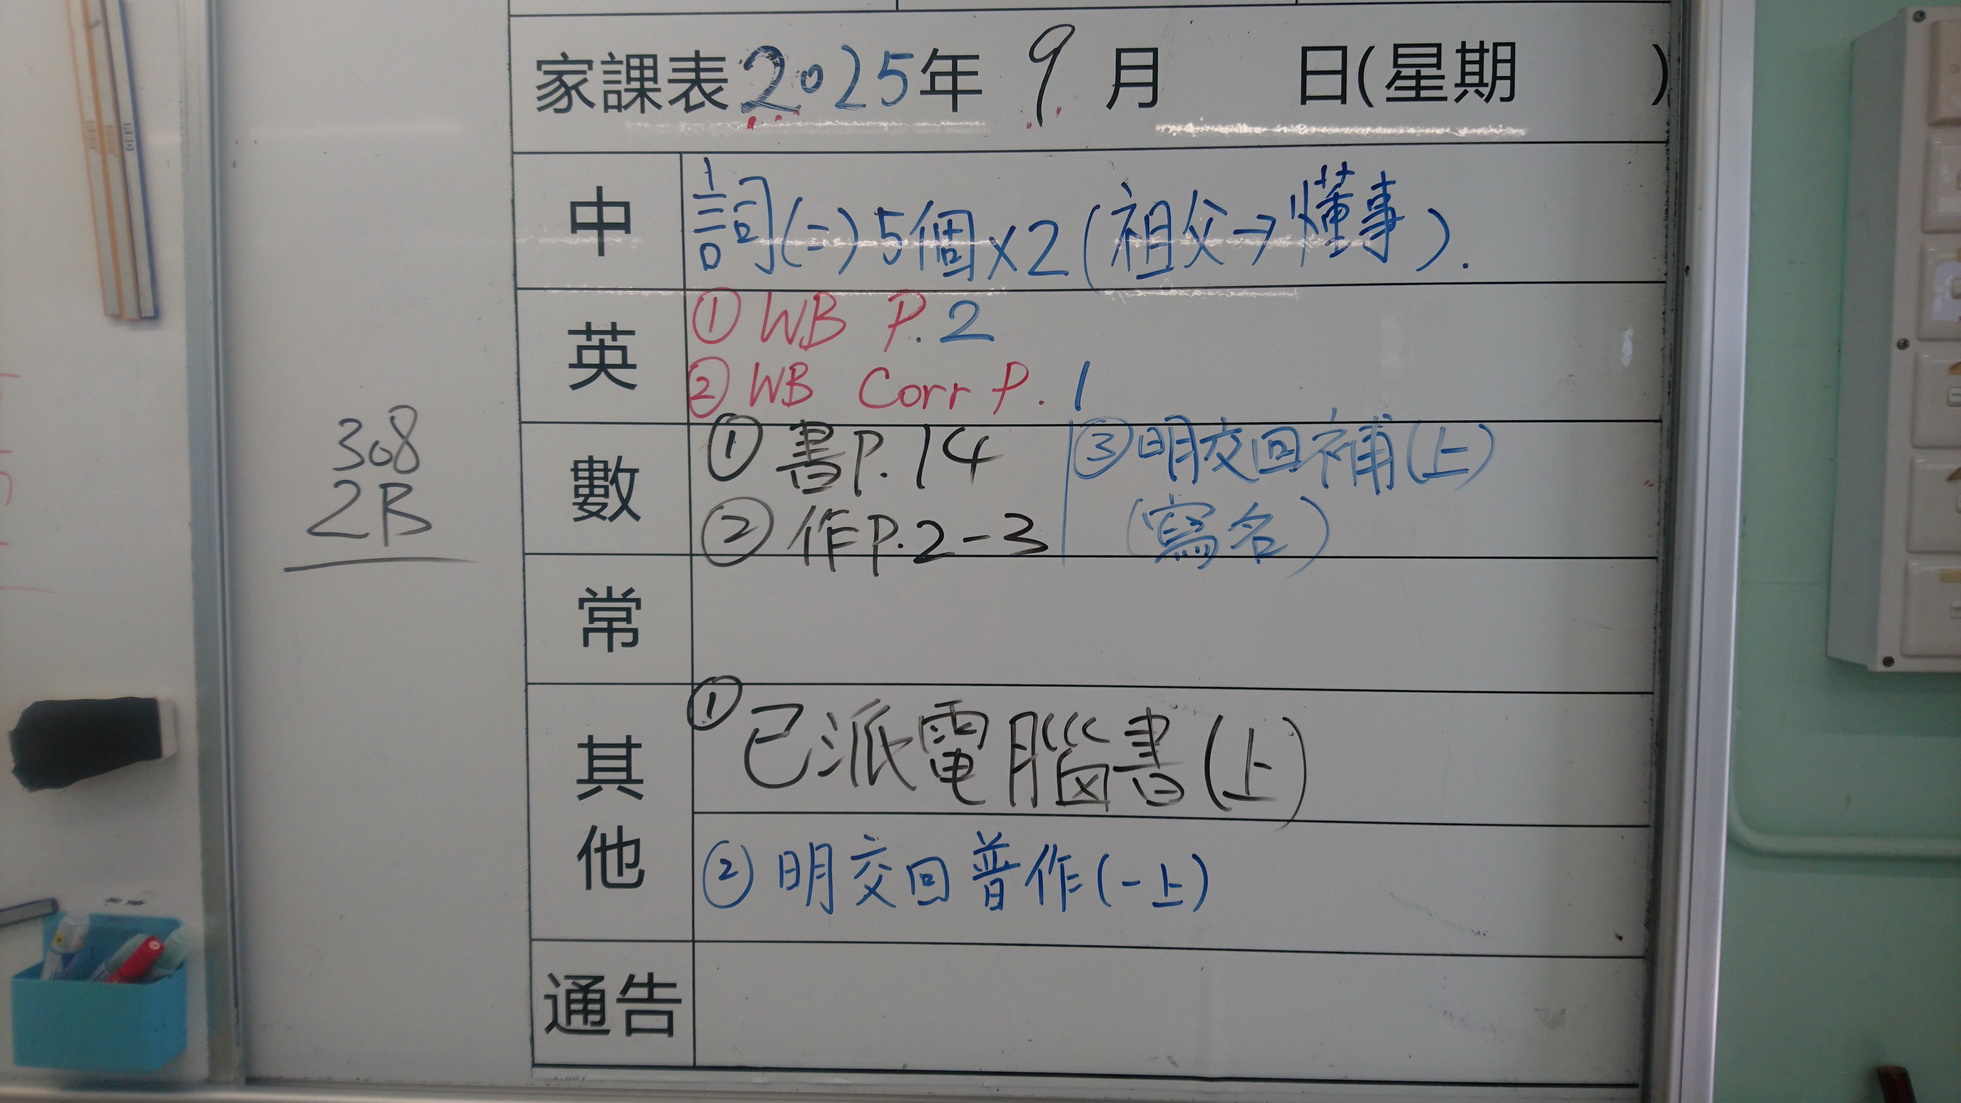 家課表2025年 9 月 日(星期 )
中 詞(二)5個×2(祖父→懂事).
英 ① WB P.2
② WB Corr P.1
數 ① 書P.14 ③明交回補(上)
② 作P.2-3 (寫名)
常
其他 ① 已派電腦書(上)
② 明交回普作(一上)
通告
308
2B